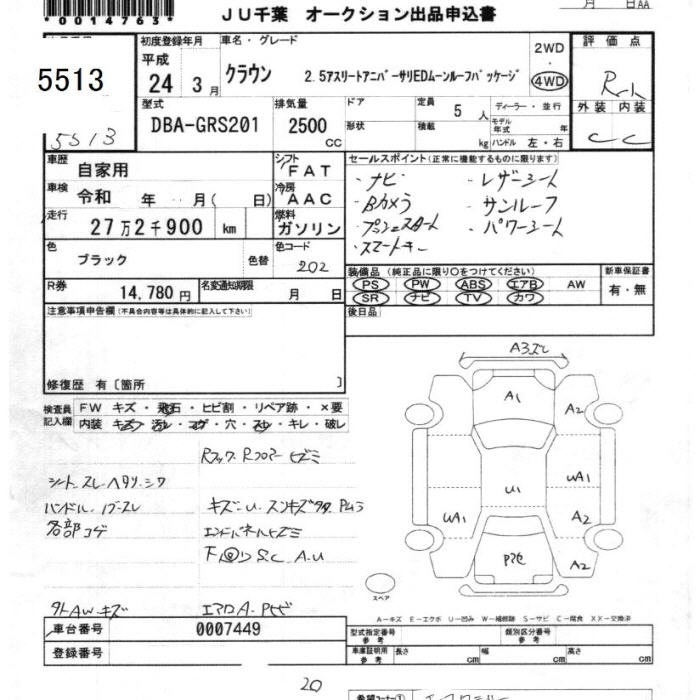 *0014763*
月 日AA
JU千葉 オークション出品申込書
5513
5513
初度登録年月
平成
24 3月
車名・グレード
クラウン 2.5アスリートアニバーサリEDムーンルーフパッケージ
2WD
4WD
評価点
外装 内装
C C
型式
DBA-GRS201
排気量
2500
CC
ドア
形状
定員 5 人
積載 kg
ディーラー・並行
モデル年式 年
ハンドル 左・右
車歴
自家用
シフト
FAT
車検
令和 年 月( 日)
冷房
AAC
走行
27万2千900 km
燃料
ガソリン
色
ブラック 色替
色コード
202
R券
14,780円
名変通知期限
月 日
セールスポイント(正常に機能するものに限ります)
・ナビ ・レザーシート
・Bカメラ ・サンルーフ
・プッシュスタート ・パワーシート
・スマートキー
装備品(純正品に限り○をつけてください)
PS PW ABS エアB AW
SR ナビ TV カワ
新車保証書
有・無
後日品
注意事項申告欄(不具合内容等は具体的に記入して下さい)
修復歴 有〔箇所 〕
検査員記入欄
FW キズ・飛石・ヒビ割・リペア跡・×要
内装 キズ・汚レ・コゲ・穴・スレ・キレ・破レ
シートスレ・ヘタリ・シワ
ハンドル・ノブスレ
各部コゲ
外AWキズ
キズ・U
エンドパネルヒズミ
下回りS.C A.U
エアロA・Pヒビ
A3ズレ
A1
A2
UA1
U1
UA1
A2
A2
スペア
A−キズ E−エクボ U−凹み W−補修跡 S−サビ C−腐食 XX−交換済
車台番号 0007449
登録番号
型式指定番号
参考
類別区分番号
参考
車庫証明用
参考
長さ cm
幅 cm
高さ cm
20
希望コーナー①